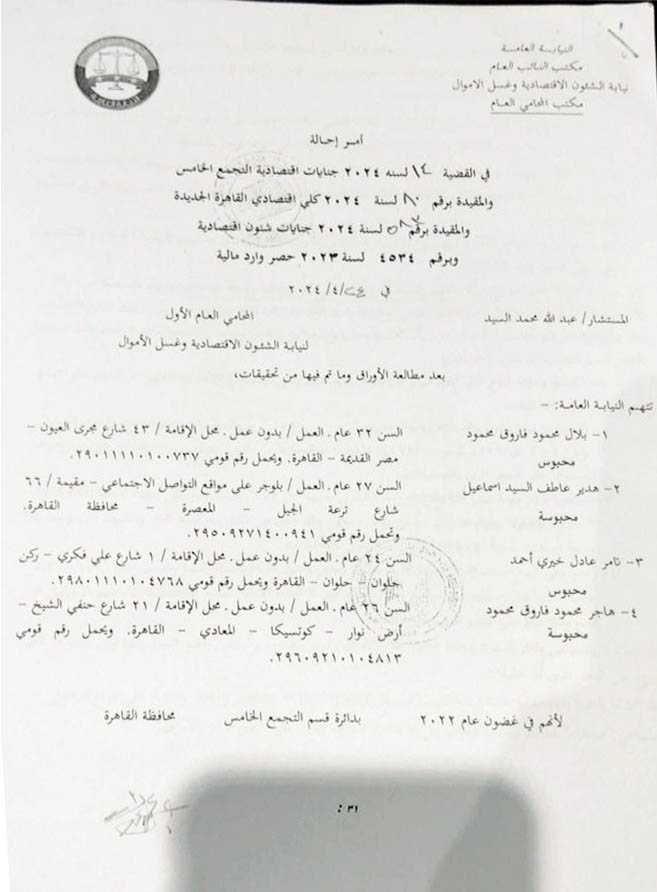 النيابة العامة
مكتب النائب العام
نيابة الشئون الاقتصادية وغسل الاموال
مكتب المحامي العام
أمر إحالة
في القضية ١٤ لسنه ٢٠٢٤ جنايات اقتصادية التجمع الخامس
والمقيدة برقم ٨٠ لسنة ٢٠٢٤ كلي اقتصادي القاهرة الجديدة
والمقيدة برقم لسنة ٢٠٢٤ جنايات شئون اقتصادية
وبرقم ٤٥٣٤ لسنة ٢٠٢٣ حصر وارد مالية
في /٤/٢٠٢٤
المستشار/ عبد الله محمد السيد المحامي العام الأول
لنيابة الشئون الاقتصادية وغسل الأموال
بعد مطالعة الأوراق وما تم فيها من تحقيقات،
تتهم النيابة العامة: –
١– بلال محمود فاروق محمود السن ٣٢ عام. العمل / بدون عمل. محل الإقامة / ٤٣ شارع مجرى العيون –
محبوس مصر القديمة – القاهرة. ويحمل رقم قومي ٢٩٠١١١١٠١٠٠٧٣٧.
٢– هدير عاطف السيد اسماعيل السن ٢٧ عام. العمل / بلوجر على مواقع التواصل الاجتماعي – مقيمة / ٦٦
محبوسة شارع ترعة الجبل – المعصرة – محافظة القاهرة.
وتحمل رقم قومي ٢٩٥٠٩٢٧١٤٠٠٩٤١.
٣– تامر عادل خيري أحمد السن ٢٤ عام. العمل / بدون عمل. محل الإقامة / ١ شارع علي فكري – ركن
محبوس حلوان – حلوان – القاهرة ويحمل رقم قومي ٢٩٨٠١١١٠١٠٤٧٦٨.
٤– هاجر محمود فاروق محمود السن ٢٦ عام. العمل / بدون عمل. محل الإقامة / ٢١ شارع حنفي الشيخ –
محبوسة أرض نوار – كوتسيكا – المعادي – القاهرة. ويحمل رقم قومي
٢٩٦٠٩٢١٠١٠٤٨١٣.
لأنهم في غضون عام ٢٠٢٢ بدائرة قسم التجمع الخامس محافظة القاهرة
: ٣١